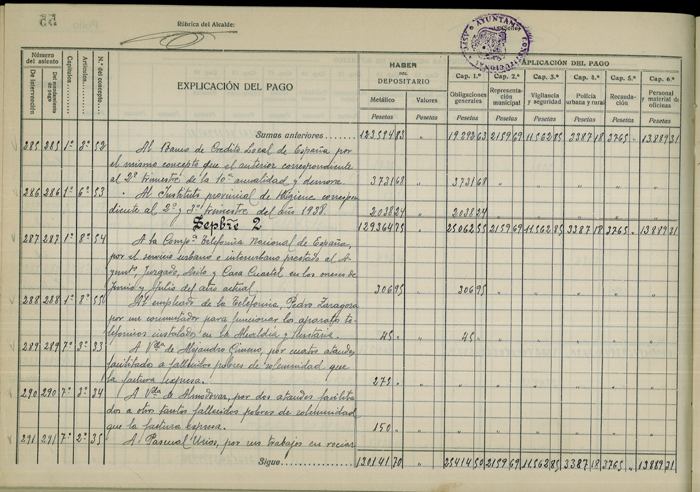 55
Rúbrica del Alcalde:
AYUNTAMIENTO CONSTITUCIONAL
Número del asiento
De intervención
Del mandamiento de pago
Capítulos
Artículos
N.º del concepto
EXPLICACIÓN DEL PAGO
HABER DEL DEPOSITARIO
Metálico
Valores
APLICACIÓN DEL PAGO
Cap. 1.º Cap. 2.º Cap. 3.º Cap. 4.º Cap. 5.º Cap. 6.º
Obligaciones generales
Representación municipal
Vigilancia y seguridad
Policía urbana y rural
Recaudación
Personal y material de oficinas
Pesetas Pesetas Pesetas Pesetas Pesetas Pesetas Pesetas Pesetas
Sumas anteriores 123594 83 " 19282 63 2159 69 11562 85 3387 18 3765 " 13889 31
285 285 1º 3º 52 Al Banco de Credito Local de España por
el mismo concepto que el anterior correspondiente
al 2º trimestre de la 10ª anualidad y demora 3731 68 " 3731 68
286 286 1º 6º 53 Al Instituto provincial de Higiene correspon
diente al 2º y 3º trimestre del año 1938 2038 24 2038 24
Sepbre 2 129364 75 " 25062 55 2159 69 11562 85 3387 18 3765 " 13889 31
287 287 1º 8º 54 A la Compª Telefonica Nacional de España,
por el servicio urbano e interurbano prestado al A-
yuntº, Juzgado, y Casa Cuartel en los meses de
Junio y Julio del año actual. 306 95 306 95
288 288 1º 8º 55 Al empleado de la Telefonica, Pedro Zaragoza
por un conmutador para funcionar los aparatos te-
lefonicos instalados en la Alcaldía y 45 " 45 "
289 289 7º 3º 33 A Vda de Alejandro Gimeno, por cuatro ataudes
facilitado a fallecidos pobres de solemnidad que
la factura expresa. 275 "
290 290 7º 3º 34 A Vda de Almodovar, por dos ataudes facilita
dos a otro tantos fallecidos pobres de solemnidad
que la factura expresa. 150 "
291 291 7º 2º 35 A Pascual Urios, por un trabajos en rociar
Sigue 130141 70 " 25414 50 2159 69 11562 85 3387 18 3765 " 13889 31